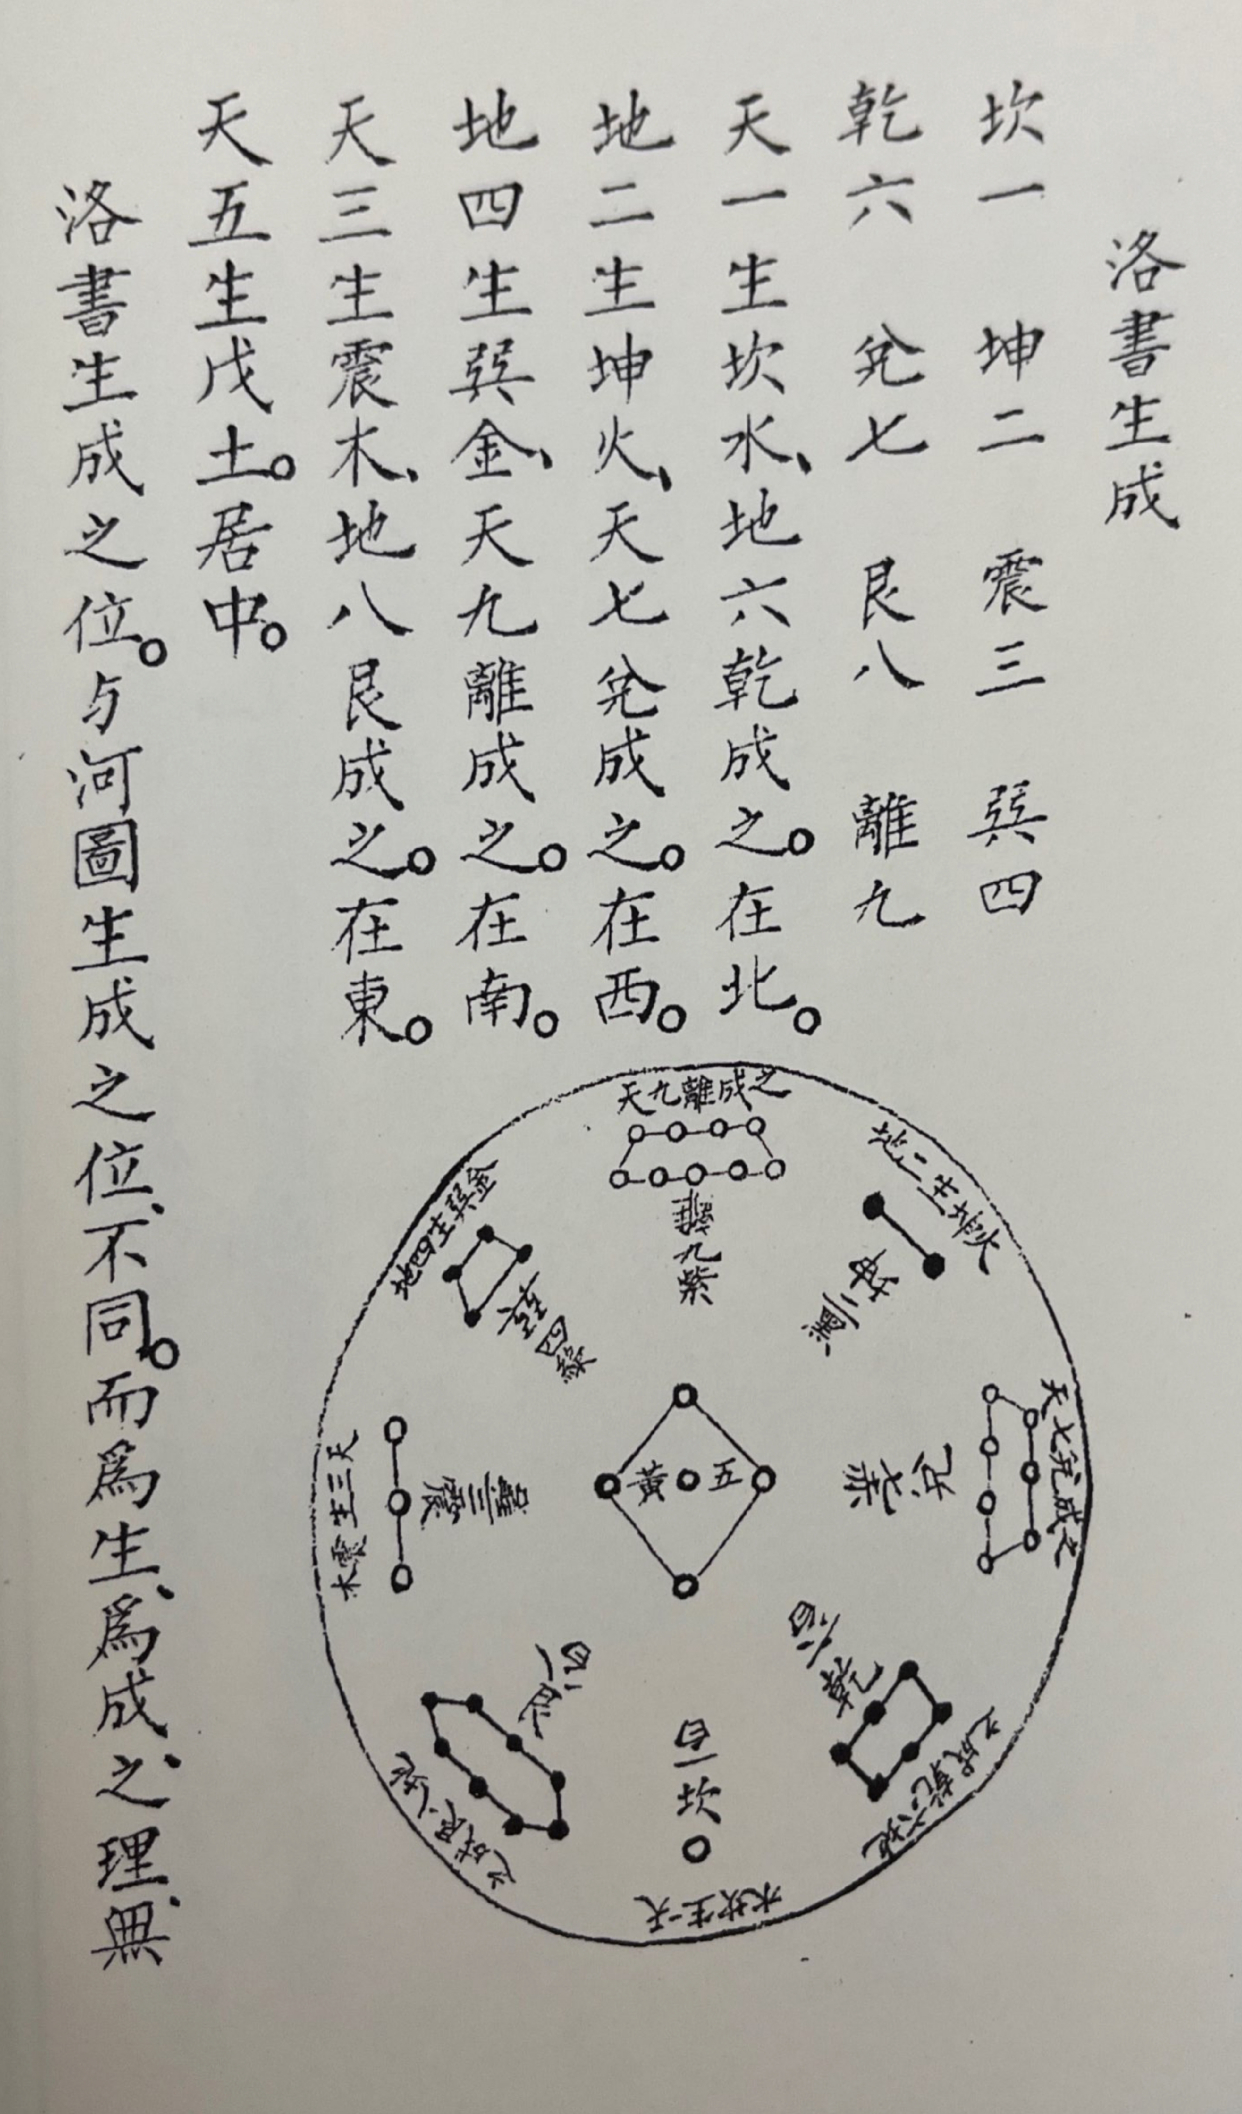 洛書生成
坎一 坤二 震三 巽四
乾六 兌七 艮八 離九
天一生坎水、地六乾成之。在北。
地二生坤火、天七兌成之。在西。
地四生巽金、天九離成之。在南。
天三生震木、地八艮成之。在東。
天五生戊土。居中。
洛書生成之位。与河圖生成之位、不同。而爲生、爲成之、理、無
天九離成之
離九紫
地二生坤火
坤二黑
天七兌成之
兌七赤
地六乾成之
乾六白
天一生坎水
坎一白
地八艮成之
艮八白
天三生震木
震三碧
地四生巽金
巽四綠
五黃